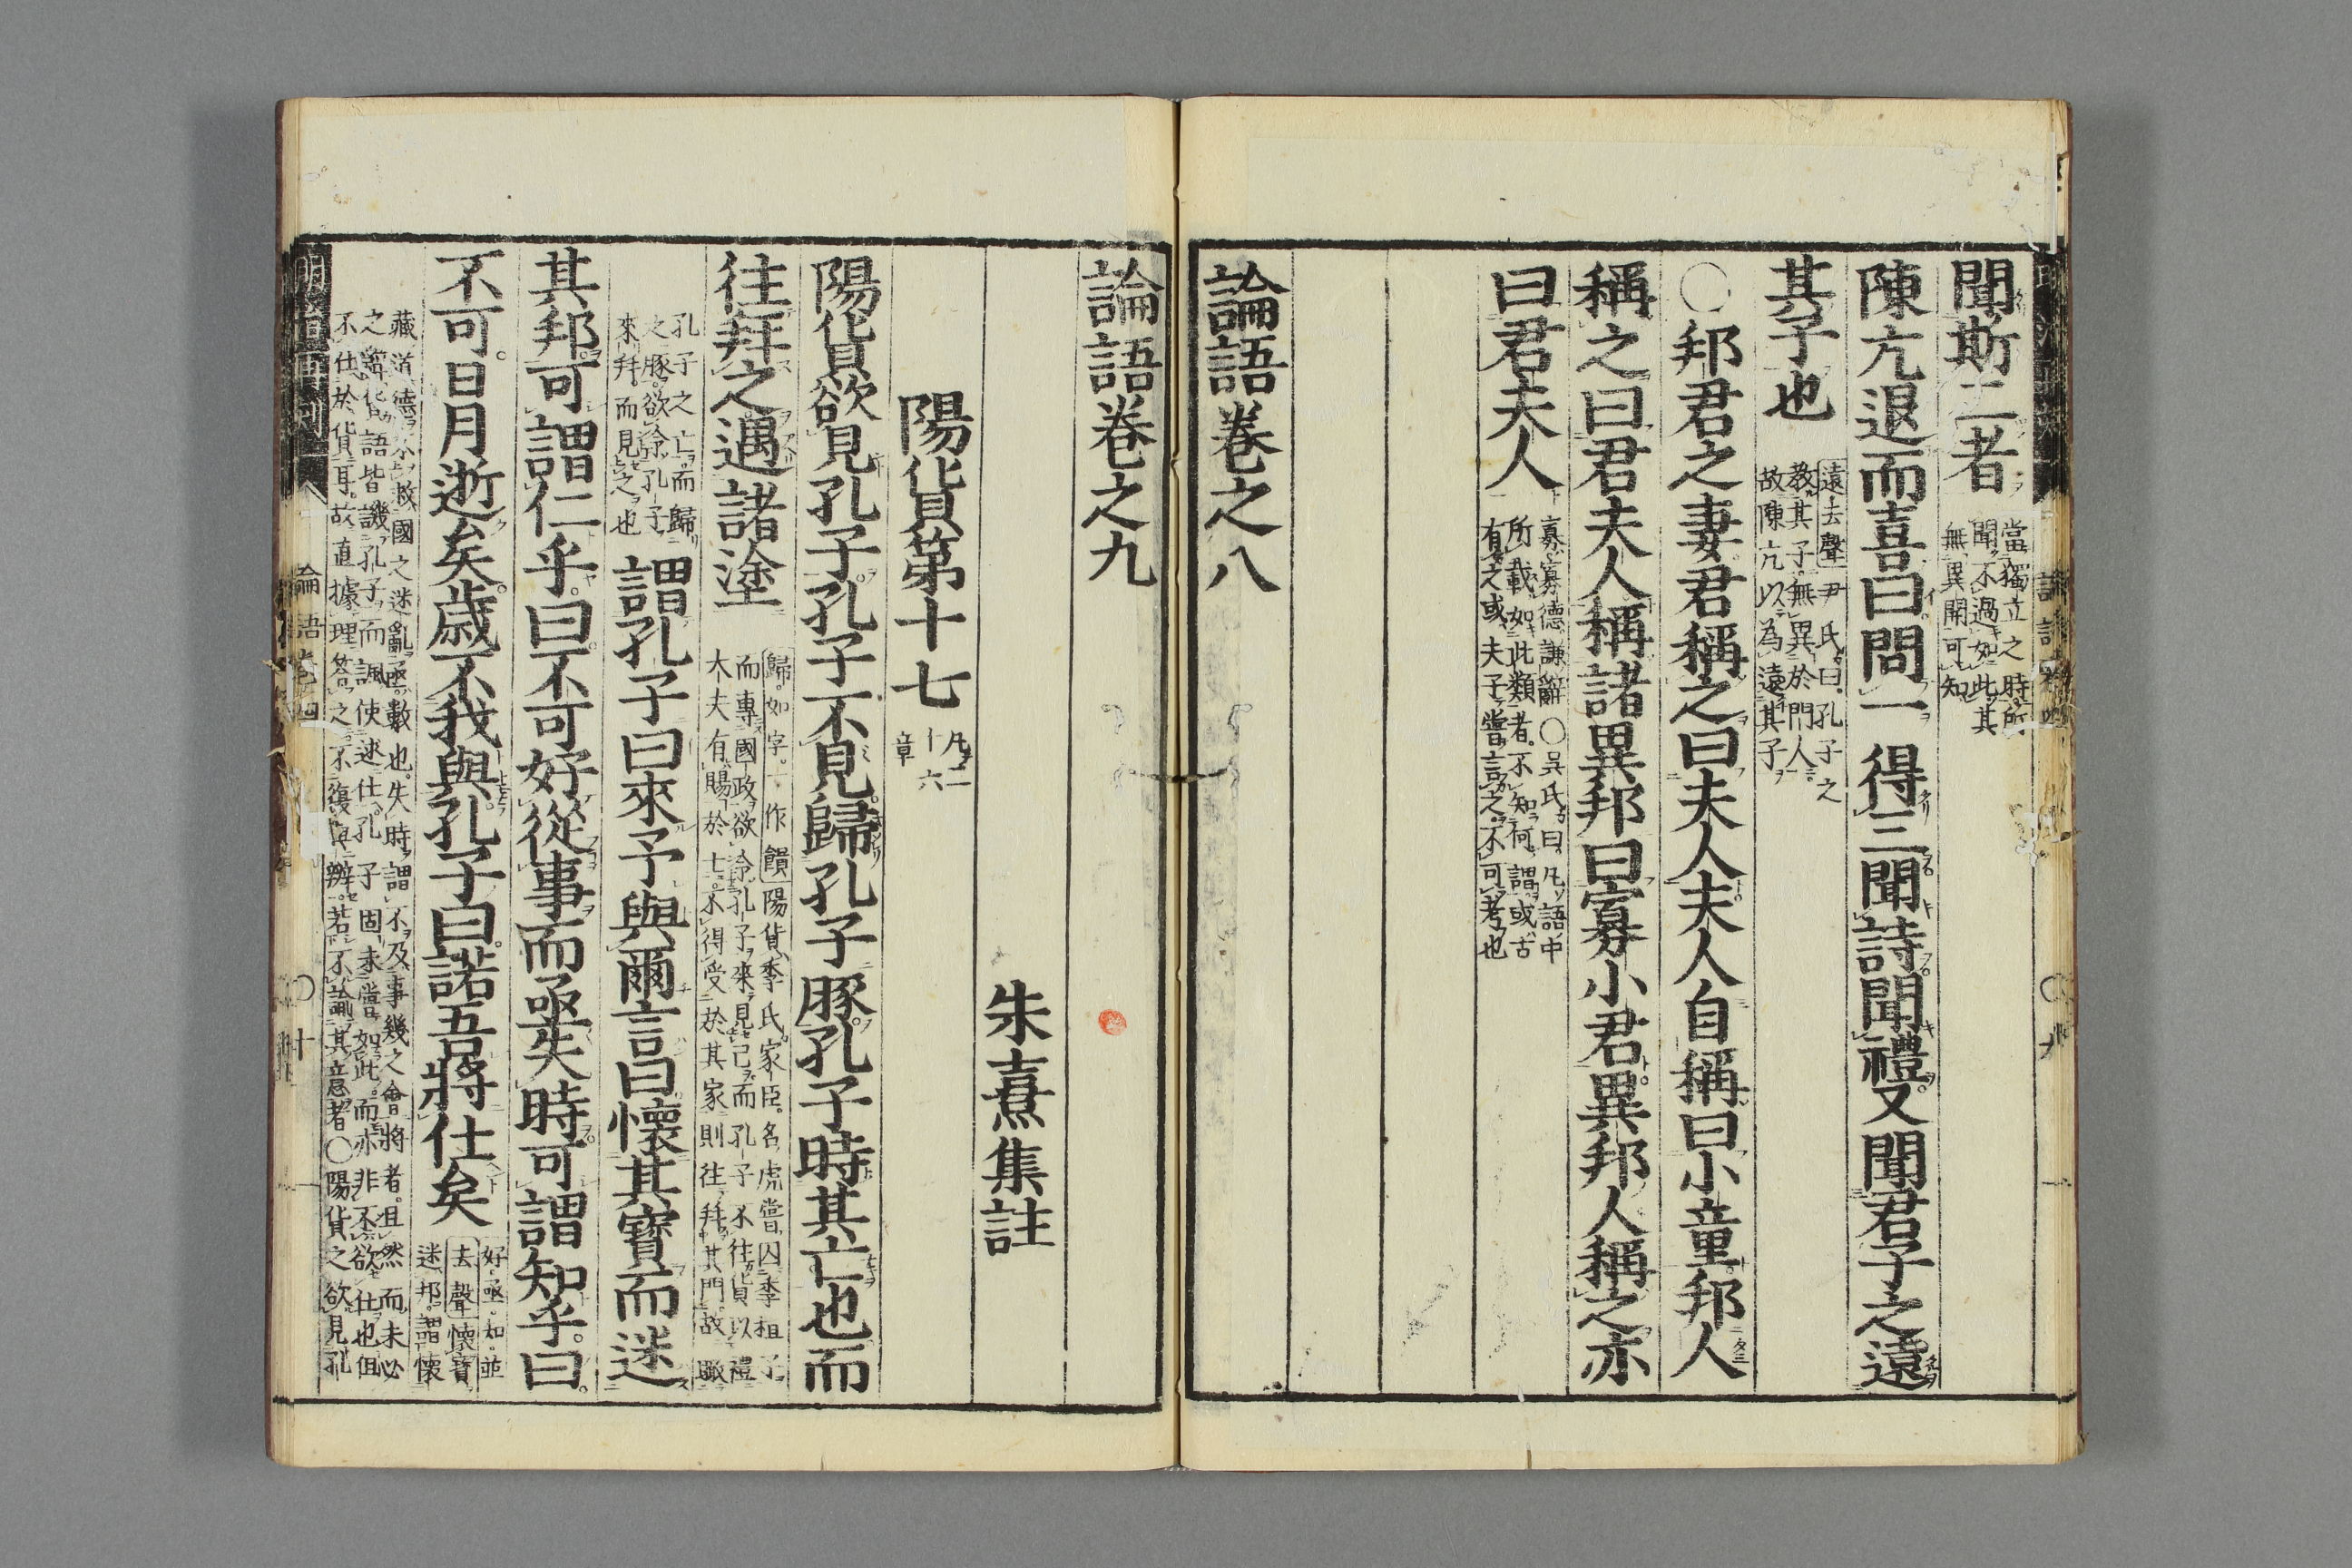 聞斯二者
當獨立之時所
聞不過如此其
無異聞可知
陳亢退而喜曰問一得三聞詩聞禮又聞君子之遠
其子也
遠去聲尹氏曰孔子之
教其子無異於門人
故陳亢以為遠其子
○邦君之妻君稱之曰夫人夫人自稱曰小童邦人
稱之曰君夫人稱諸異邦曰寡小君異邦人稱之亦
曰君夫人
寡寡德謙辭○吳氏曰凡語中
所載如此類者不知何謂或古
有之或夫子嘗言之不可考也
論語卷之八
論語卷之九
朱熹集註
陽貨第十七
凡二
十六
章
陽貨欲見孔子孔子不見歸孔子豚孔子時其亡也而
往拜之遇諸塗
歸如字一作饋陽貨季氏家臣名虎嘗囚季桓子
而專國政欲令孔子來見己而孔子不往貨以禮
大夫有賜於士不得受於其家則往拜其門故瞰
孔子之亡而歸
之豚欲令孔子
來拜而見之也
謂孔子曰來予與爾言曰懷其寶而迷
其邦可謂仁乎曰不可好從事而亟失時可謂知乎曰
不可日月逝矣歲不我與孔子曰諾吾將仕矣
好亟知並
去聲懷寶
迷邦謂懷
藏道德不救國之迷亂亟數也失時謂不及事幾之會將者且然而未必
之辭貨語皆譏孔子而諷使速仕孔子固未嘗如此而亦非不欲仕也但
不仕於貨耳故直據理答之不復與辯若不諭其意者○陽貨之欲見孔
論語卷四